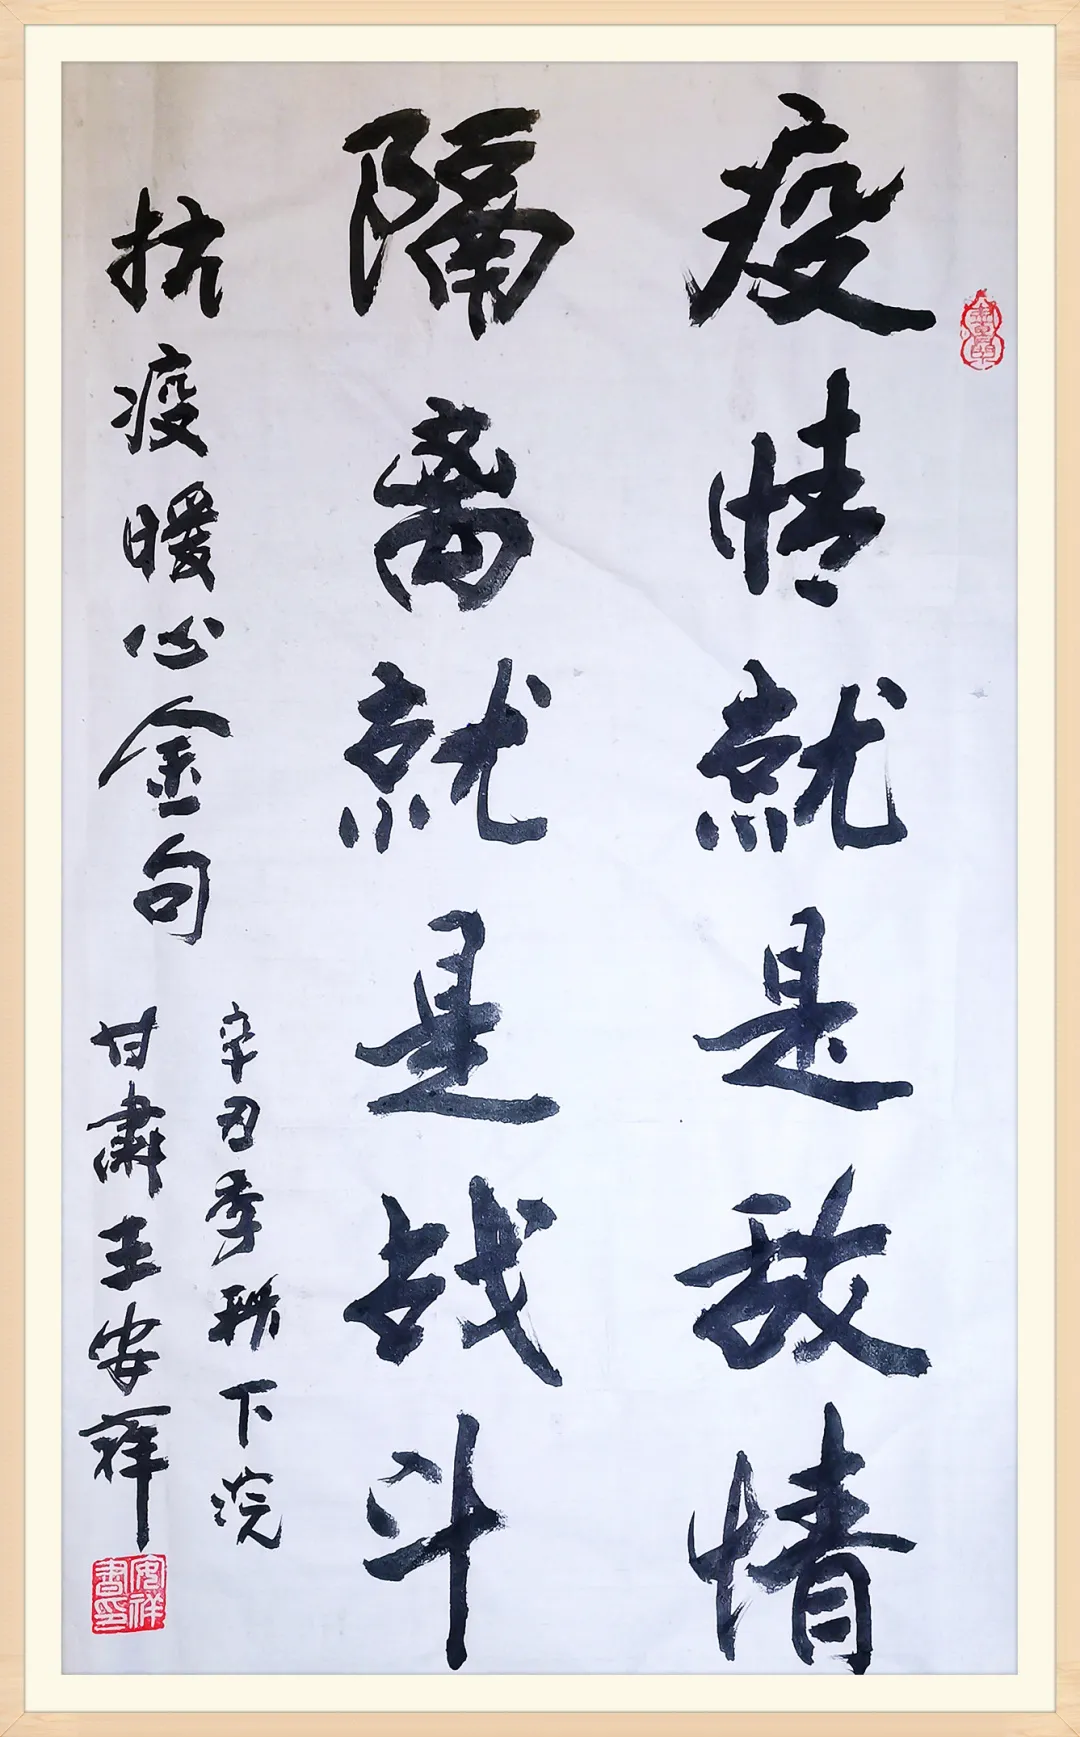 疫情就是敌情
隔离就是战斗
抗疫暖心金句
辛丑季秋下浣
甘肃王安祥
安祥
书印